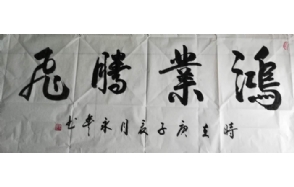 鴻業騰飛
時在庚子夏月永年书